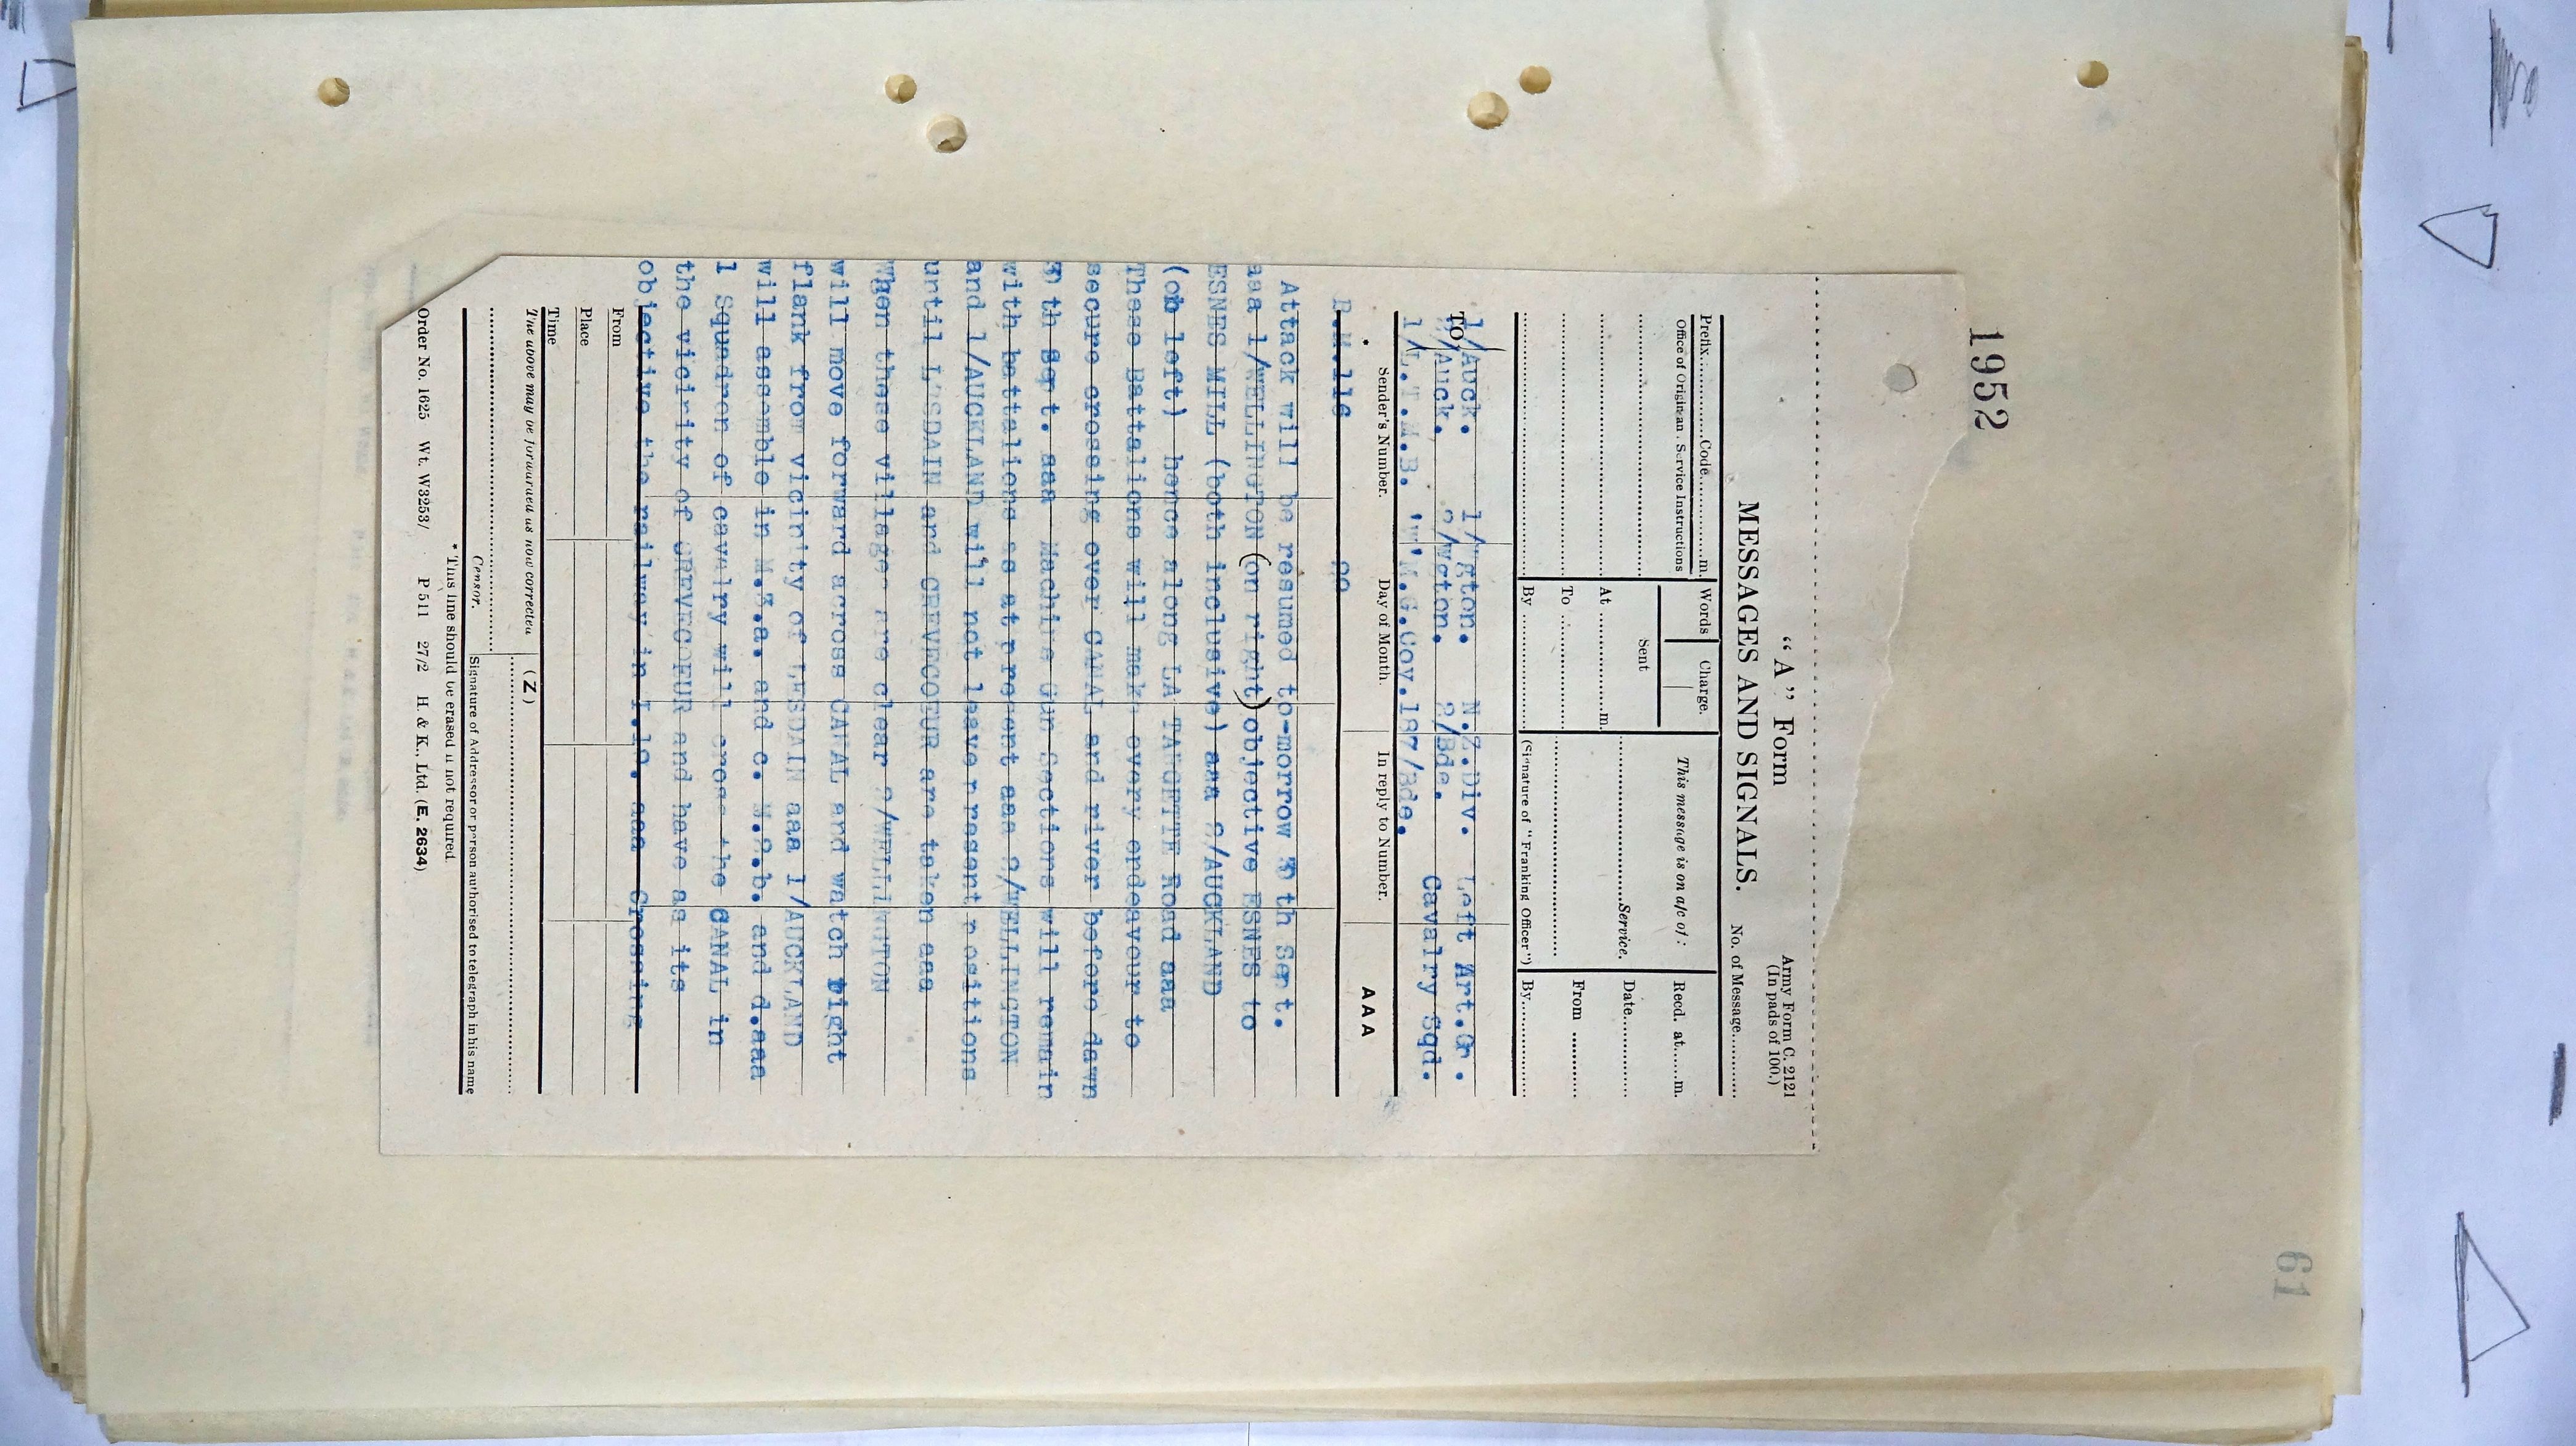 1952
"A" Form
Army Form C. 2121
(In pads of 100.)
MESSAGES AND SIGNALS.
No. of Message............
Prefix............Code............m.
Words
Charge.
This message is on a/c of :
Recd. at......m.
Office of Origin an Service Instructions
Sent
At ............m.
............Service.
Date............
To ............
From ............
By ............
(Signature of "Franking Officer")
By............
TO
1/Auck. 1/Wgton. N.Z.Div. Left Art.Gr.
2/Auck. 2/Wgton. 2/Bde. Cavalry Sqd.
1/L.T.M.B. 'W'M.G.Coy. 187/Bde.
Sender's Number.
Day of Month.
In reply to Number.
AAA
B.M.116
Attack will be resumed to-morrow 30th Sept.
aaa 1/WELLINGTON (on right) objective ESNES to
ESNES MILL (both inclusive) aaa 2/AUCKLAND
(on left) hence along LA TARGETTE Road aaa
These Battalions will make every endeavour to
secure crossing over CANAL and river before dawn
30th Sept. aaa Machine Gun Sections will remain
with battalions as at present aaa 2/WELLINGTON
and 1/AUCKLAND will not leave present positions
until LESDAIN and CREVECOEUR are taken aaa
When these villages are clear 2/WELLINGTON
will move forward across CANAL and watch right
flank from vicinity of LESDAIN aaa 1/AUCKLAND
will assemble in M.3.a. and c. M.2.b. and d.aaa
1 Squadron of cavalry will cross the CANAL in
the vicinity of CREVECOEUR and have as its
objective the railway in aaa Crossing
From
Place
Time
The above may be forwarded as now corrected
(Z)
Censor.
Signature of Addressor or person authorised to telegraph in his name
* This line should be erased if not required.
Order No. 1625 Wt. W3253/ P 511 27/2 H. & K., Ltd. (E. 2634)
61